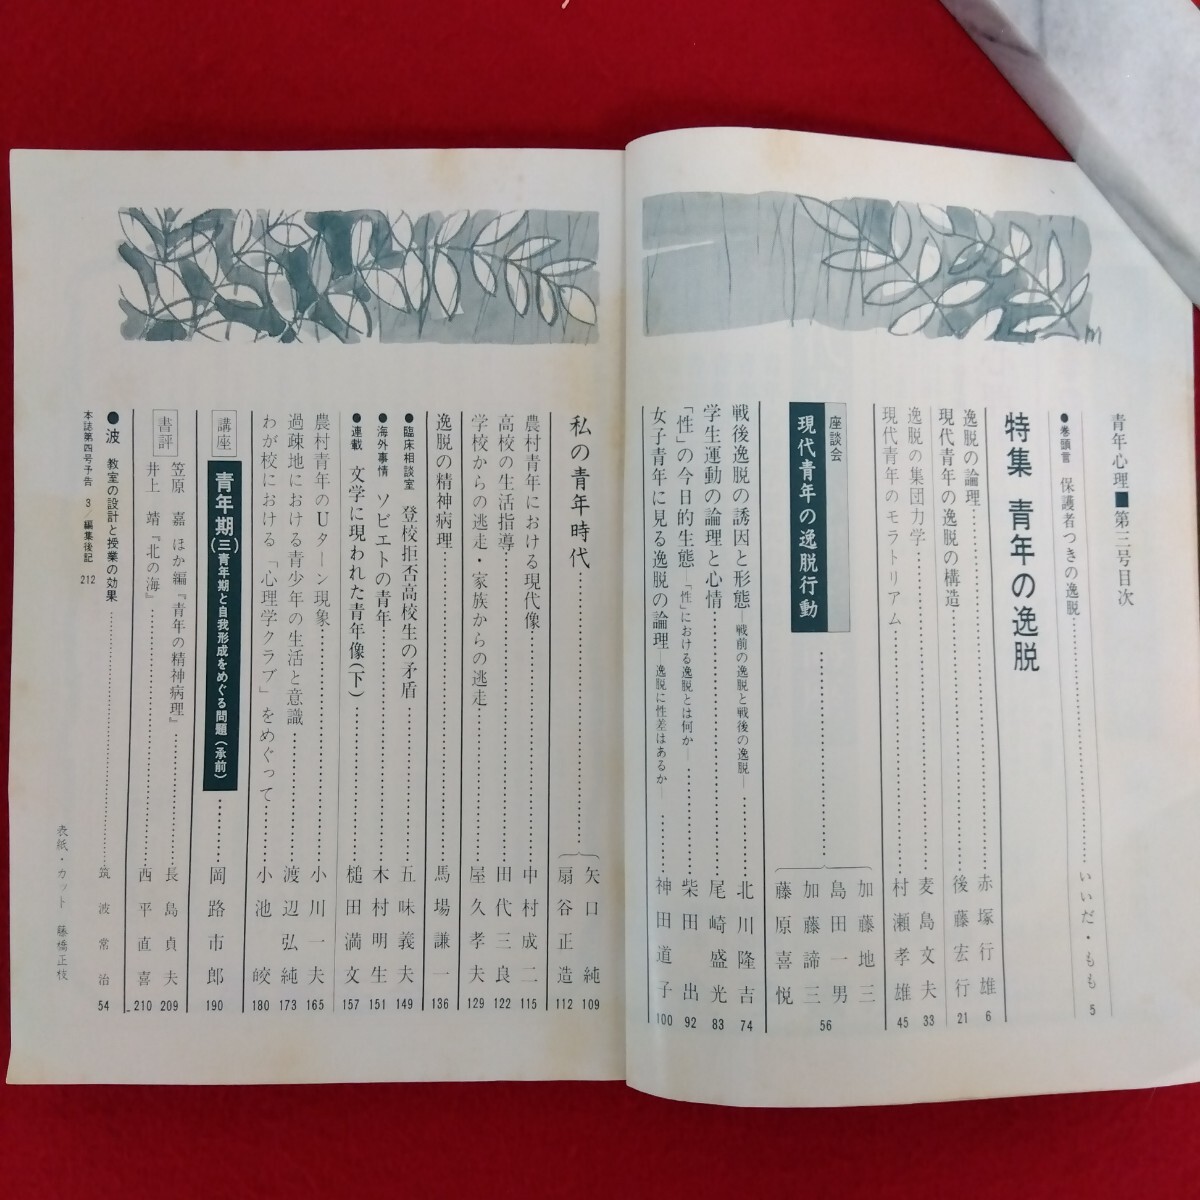 青年心理■第三号目次
●巻頭言 保護者つきの逸脱……いいだ・もも 5
特集 青年の逸脱
逸脱の論理……赤塚行雄 6
現代青年の逸脱の構造……後藤宏行 21
逸脱の集団力学……麦島文夫 33
現代青年のモラトリアム……村瀬孝雄 45
座談会
現代青年の逸脱行動……加藤地三
島田一男
加藤諦三
藤原喜悦
56
戦後逸脱の誘因と形態―戦前の逸脱と戦後の逸脱―……北川隆吉 74
学生運動の論理と心情……尾崎盛光 83
「性」の今日的生態―「性」における逸脱とは何か―……柴田出 92
女子青年に見る逸脱の論理―逸脱に性差はあるか―……神田道子 100
私の青年時代……矢口純 109
扇谷正造 112
農村青年における現代像……中村成二 115
高校の生活指導……田代三良 122
学校からの逃走・家族からの逃走……屋久孝夫 129
逸脱の精神病理……馬場謙一 136
●臨床相談室 登校拒否高校生の矛盾……五味義夫 149
●海外事情 ソビエトの青年……木村明生 151
●連載 文学に現われた青年像(下)……槌田満文 157
農村青年のUターン現象……小川一夫 165
過疎地における青少年の生活と意識……渡辺弘純 173
わが校における「心理学クラブ」をめぐって……小池皎 180
講座 青年期(三)青年期と自我形成をめぐる問題(承前)……岡路市郎 190
書評 笠原 嘉 ほか編『青年の精神病理』……長島貞夫 209
井上 靖『北の海』……西平直喜 210
●波 教室の設計と授業の効果……筑波常治 54
本誌第四号予告 3／編集後記 212
表紙・カット 藤橋正枝